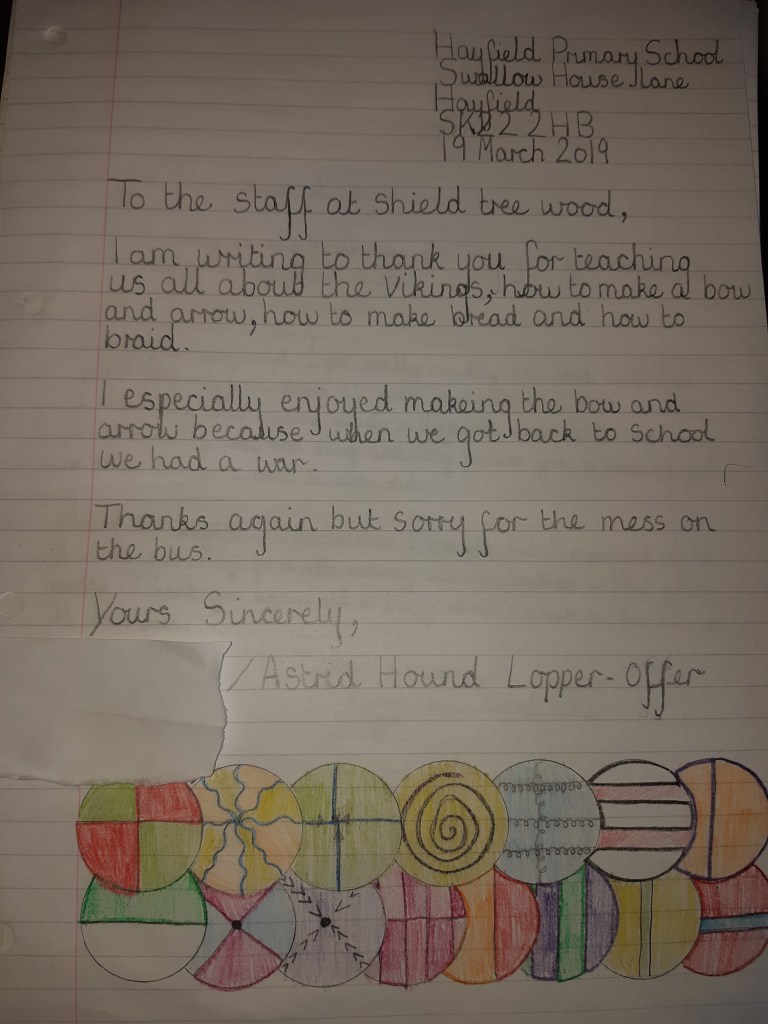 Hayfield Primary School
Swallow House Lane
Hayfield
SK22 2HB
19 March 2019
To the staff at shield tree wood,
I am writing to thank you for teaching
us all about the Vikings, how to make a bow
and arrow, how to make bread and how to
braid.
I especially enjoyed makeing the bow and
arrow because when we got back to school
we had a war.
Thanks again but sorry for the mess on
the bus.
Yours Sincerely,
/Astrid Hound Lopper-Offer